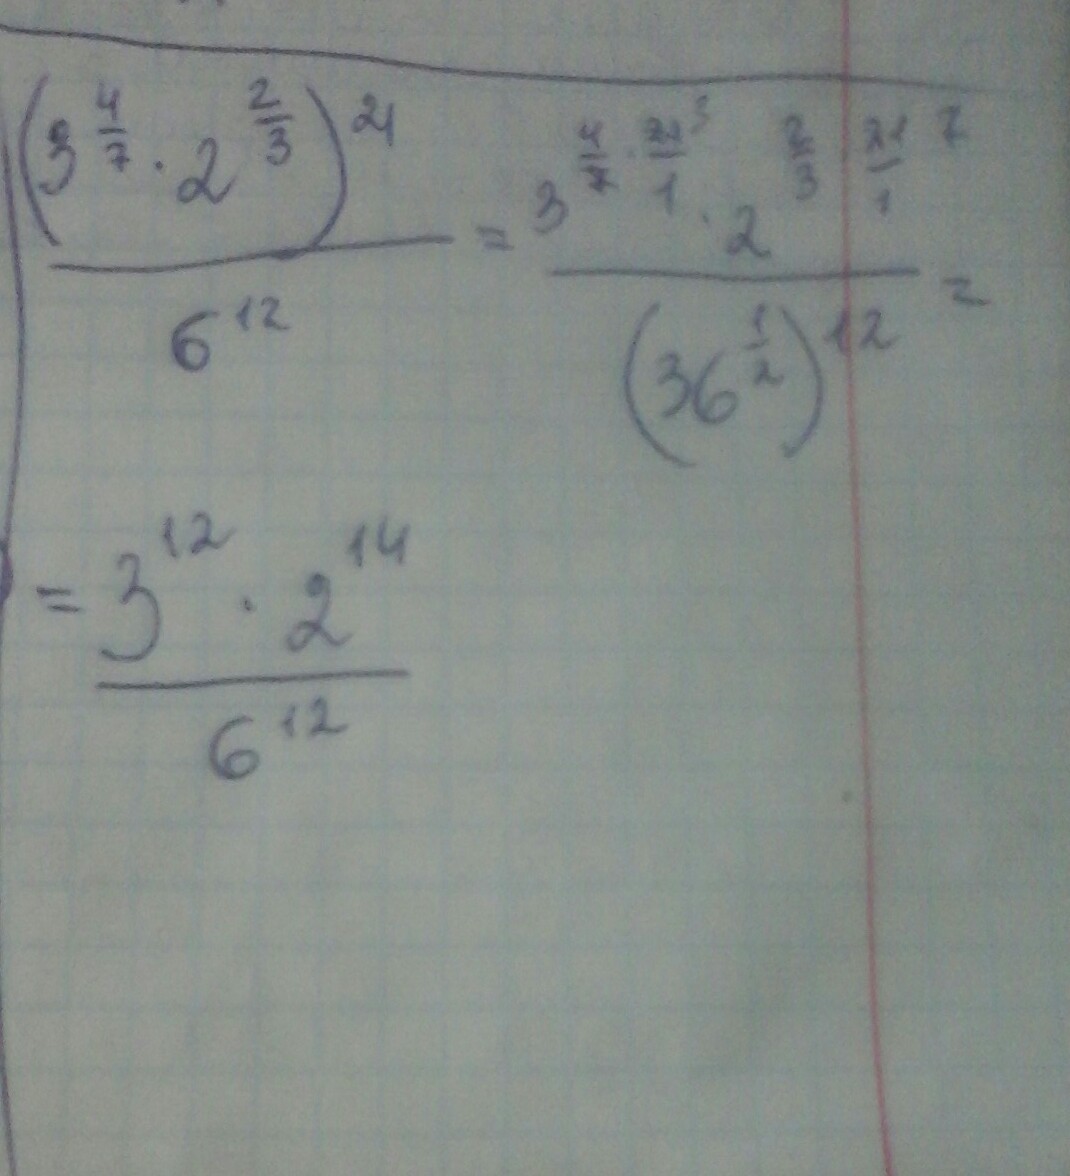 (3^(4/7) · 2^(2/3))^21 / 6^12 = 3^(4/7 · 21/1 3) · 2^(2/3 21/1 7) / (36^(1/2))^12 =
= 3^12 · 2^14 / 6^12